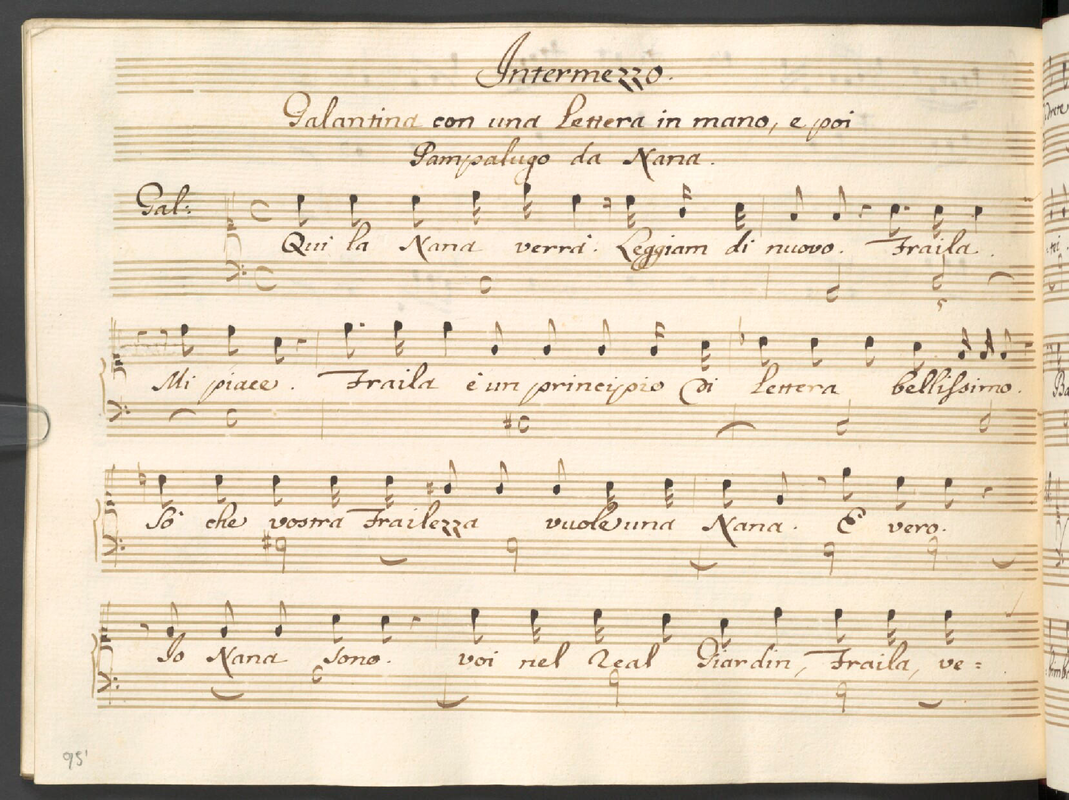 Intermezzo.
Galantina con una lettera in mano, e poi
Pampalugo da Nana.
Gal:
Qui la Nana verrà. Leggiam di nuovo. Fraila.
Mi piace. Fraila è un principio di lettera bellissimo.
Sò che vostra Frailezza vuole una Nana. È vero.
Io Nana sono. voi nel Real Giardin, Fraila, ve=
95'